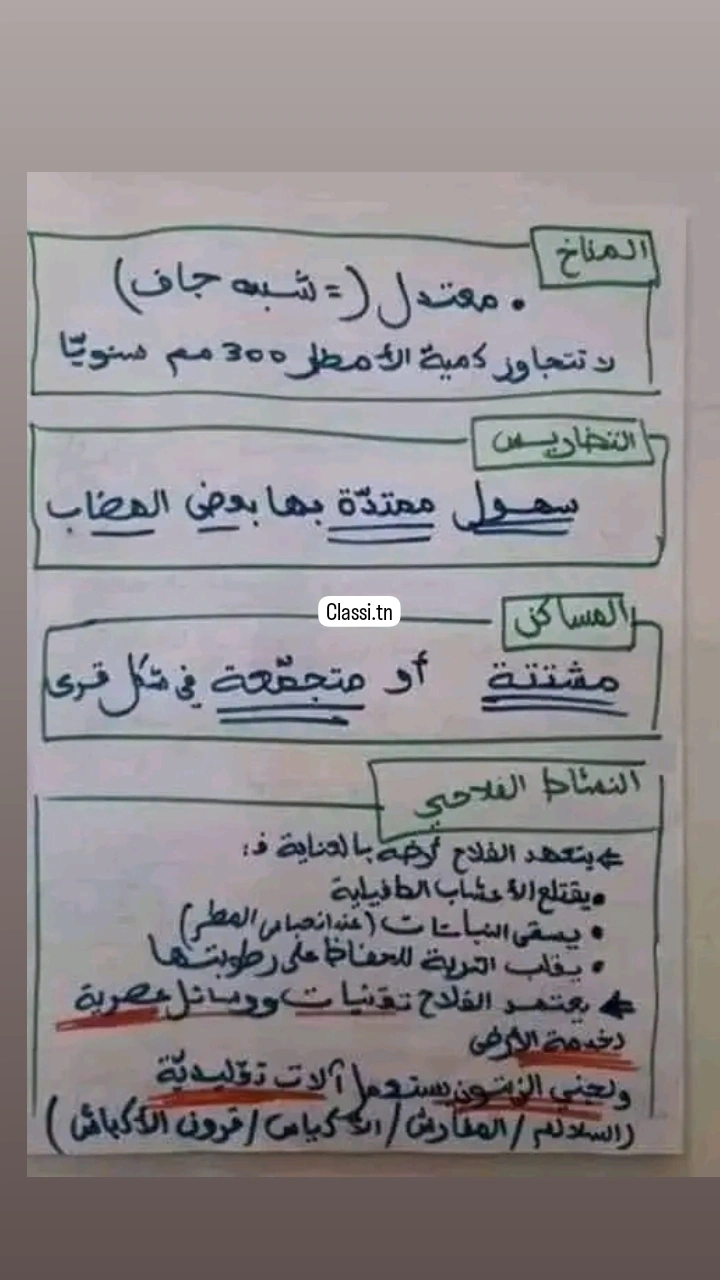 المناخ
• معتدل (= شبه جاف)
لا تتجاوز كمية الأمطار 300 مم سنويّا
التضاريس
سهول ممتدّة بها بعض الهضاب
Classi.tn
المساكن
مشتتة أو متجمّعة في شكل قرى
النشاط الفلاحي
⇐ يتعهد الفلاح أرضه بالعناية فـ:
• يقتلع الأعشاب الطفيلية
• يسقي النباتات (عند انحباس المطر)
• يقلب التربة للحفاظ على رطوبتها
⇐ يعتمد الفلاح تقنيات ووسائل عصرية
لخدمة الأرض
ولجني الزيتون يستعمل آلات تقليديّة
(السلالم / المفارش / الأكياس / قرون الأكباش)